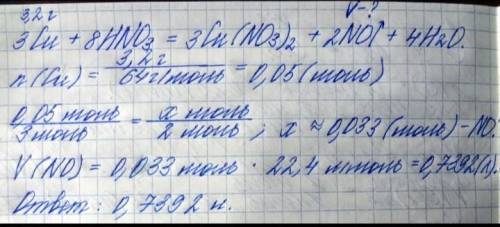 3,2 г V-?
3Cu + 8HNO₃ = 3Cu(NO₃)₂ + 2NO↑ + 4H₂O.
n(Cu) = 3,2 г / 64 г/моль = 0,05 (моль)
0,05 моль / 3 моль = x моль / 2 моль ; x ≈ 0,033 (моль) - NO.
V(NO) = 0,033 моль · 22,4 л/моль = 0,7392 (л).
Ответ: 0,7392 л.